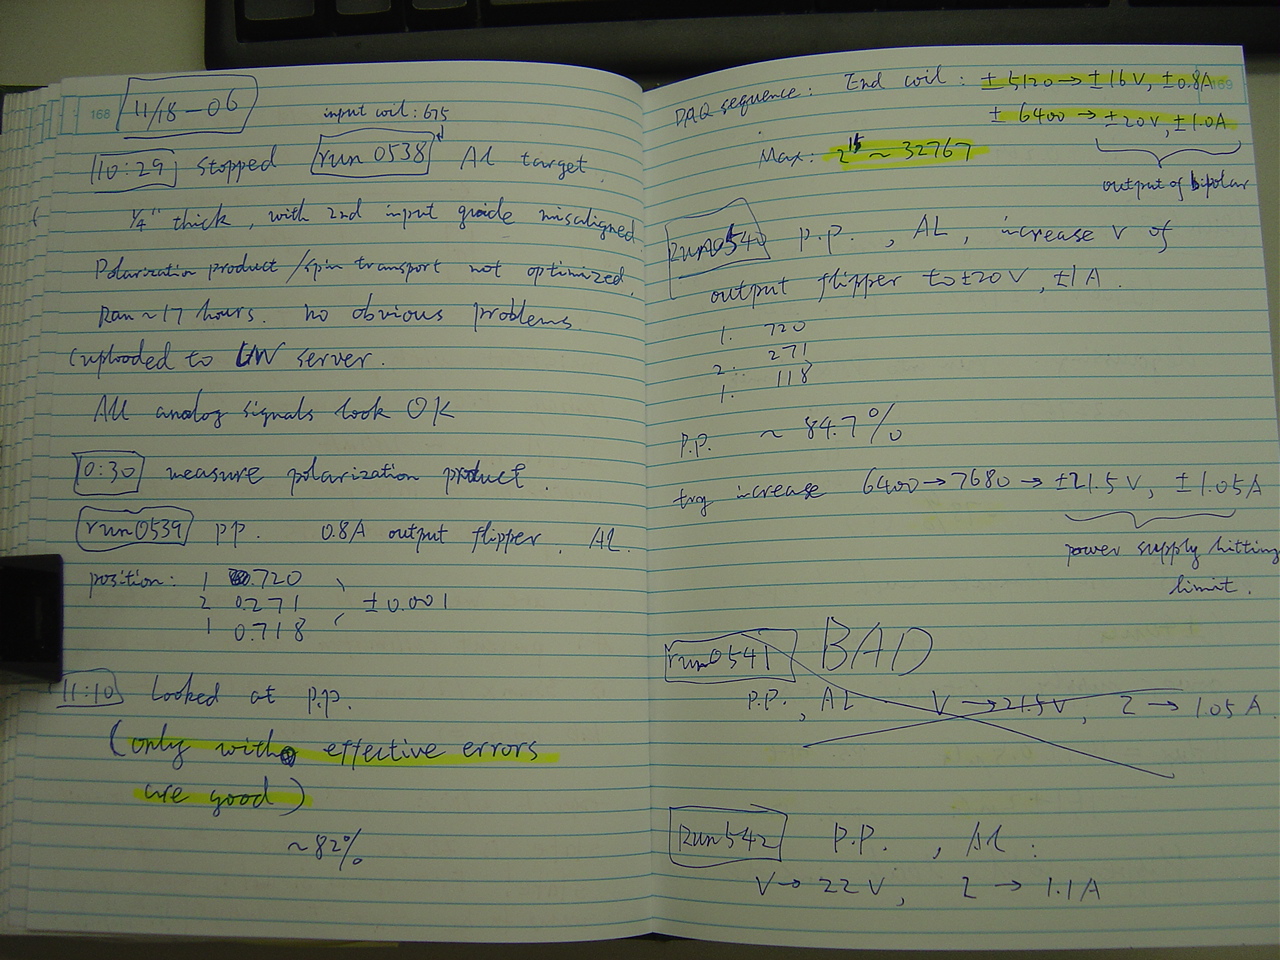 168
11/18-06
input coil: 675
10:29 stopped run 0538 AL target.
1/4" thick, with 2nd input guide misaligned
Polarization product / spin transport not optimized.
Ran ~17 hours. no obvious problems
(uploaded to UW server.
All analog signals look OK
0:30 measure polarization product.
run0539 PP. 0.8A output flipper, AL.
position: 1 0.720
2 0.271 ±0.001
1 0.718
11:10 Looked at P.P.
(only with effective errors
are good)
~82%
169
DAQ sequence: End coil: ±5120→±16V, ±0.8A
±6400→±20V, ±1.0A
Max: 2^15 ~ 32767
output of bipolar
Run0540 P.P., AL, increase V of
output flipper to ±20V, ±1A.
1. 720
2. 271
1. 118
P.P. ~ 84.7%
increase 6400→7680→±21.5V, ±1.05A
power supply hitting
limit.
run0541 BAD
P.P., AL V→21.5V, I→1.05A
Run542 P.P., AL.
V→22V, I→1.1A